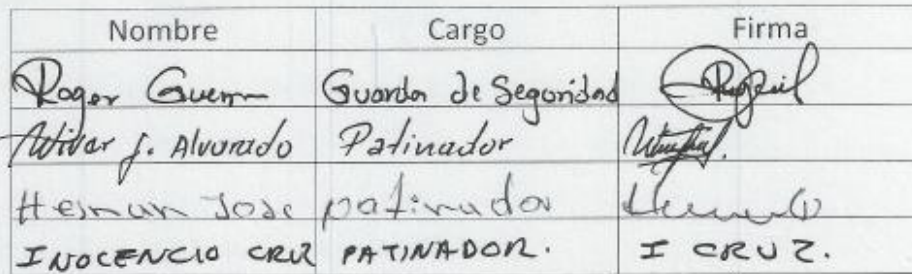 Nombre Cargo Firma
Roger Guerra Guarda de Seguridad
Wilber J. Alvarado Patinador
Hernan Jose patinador
INOCENCIO CRUZ PATINADOR. I CRUZ.